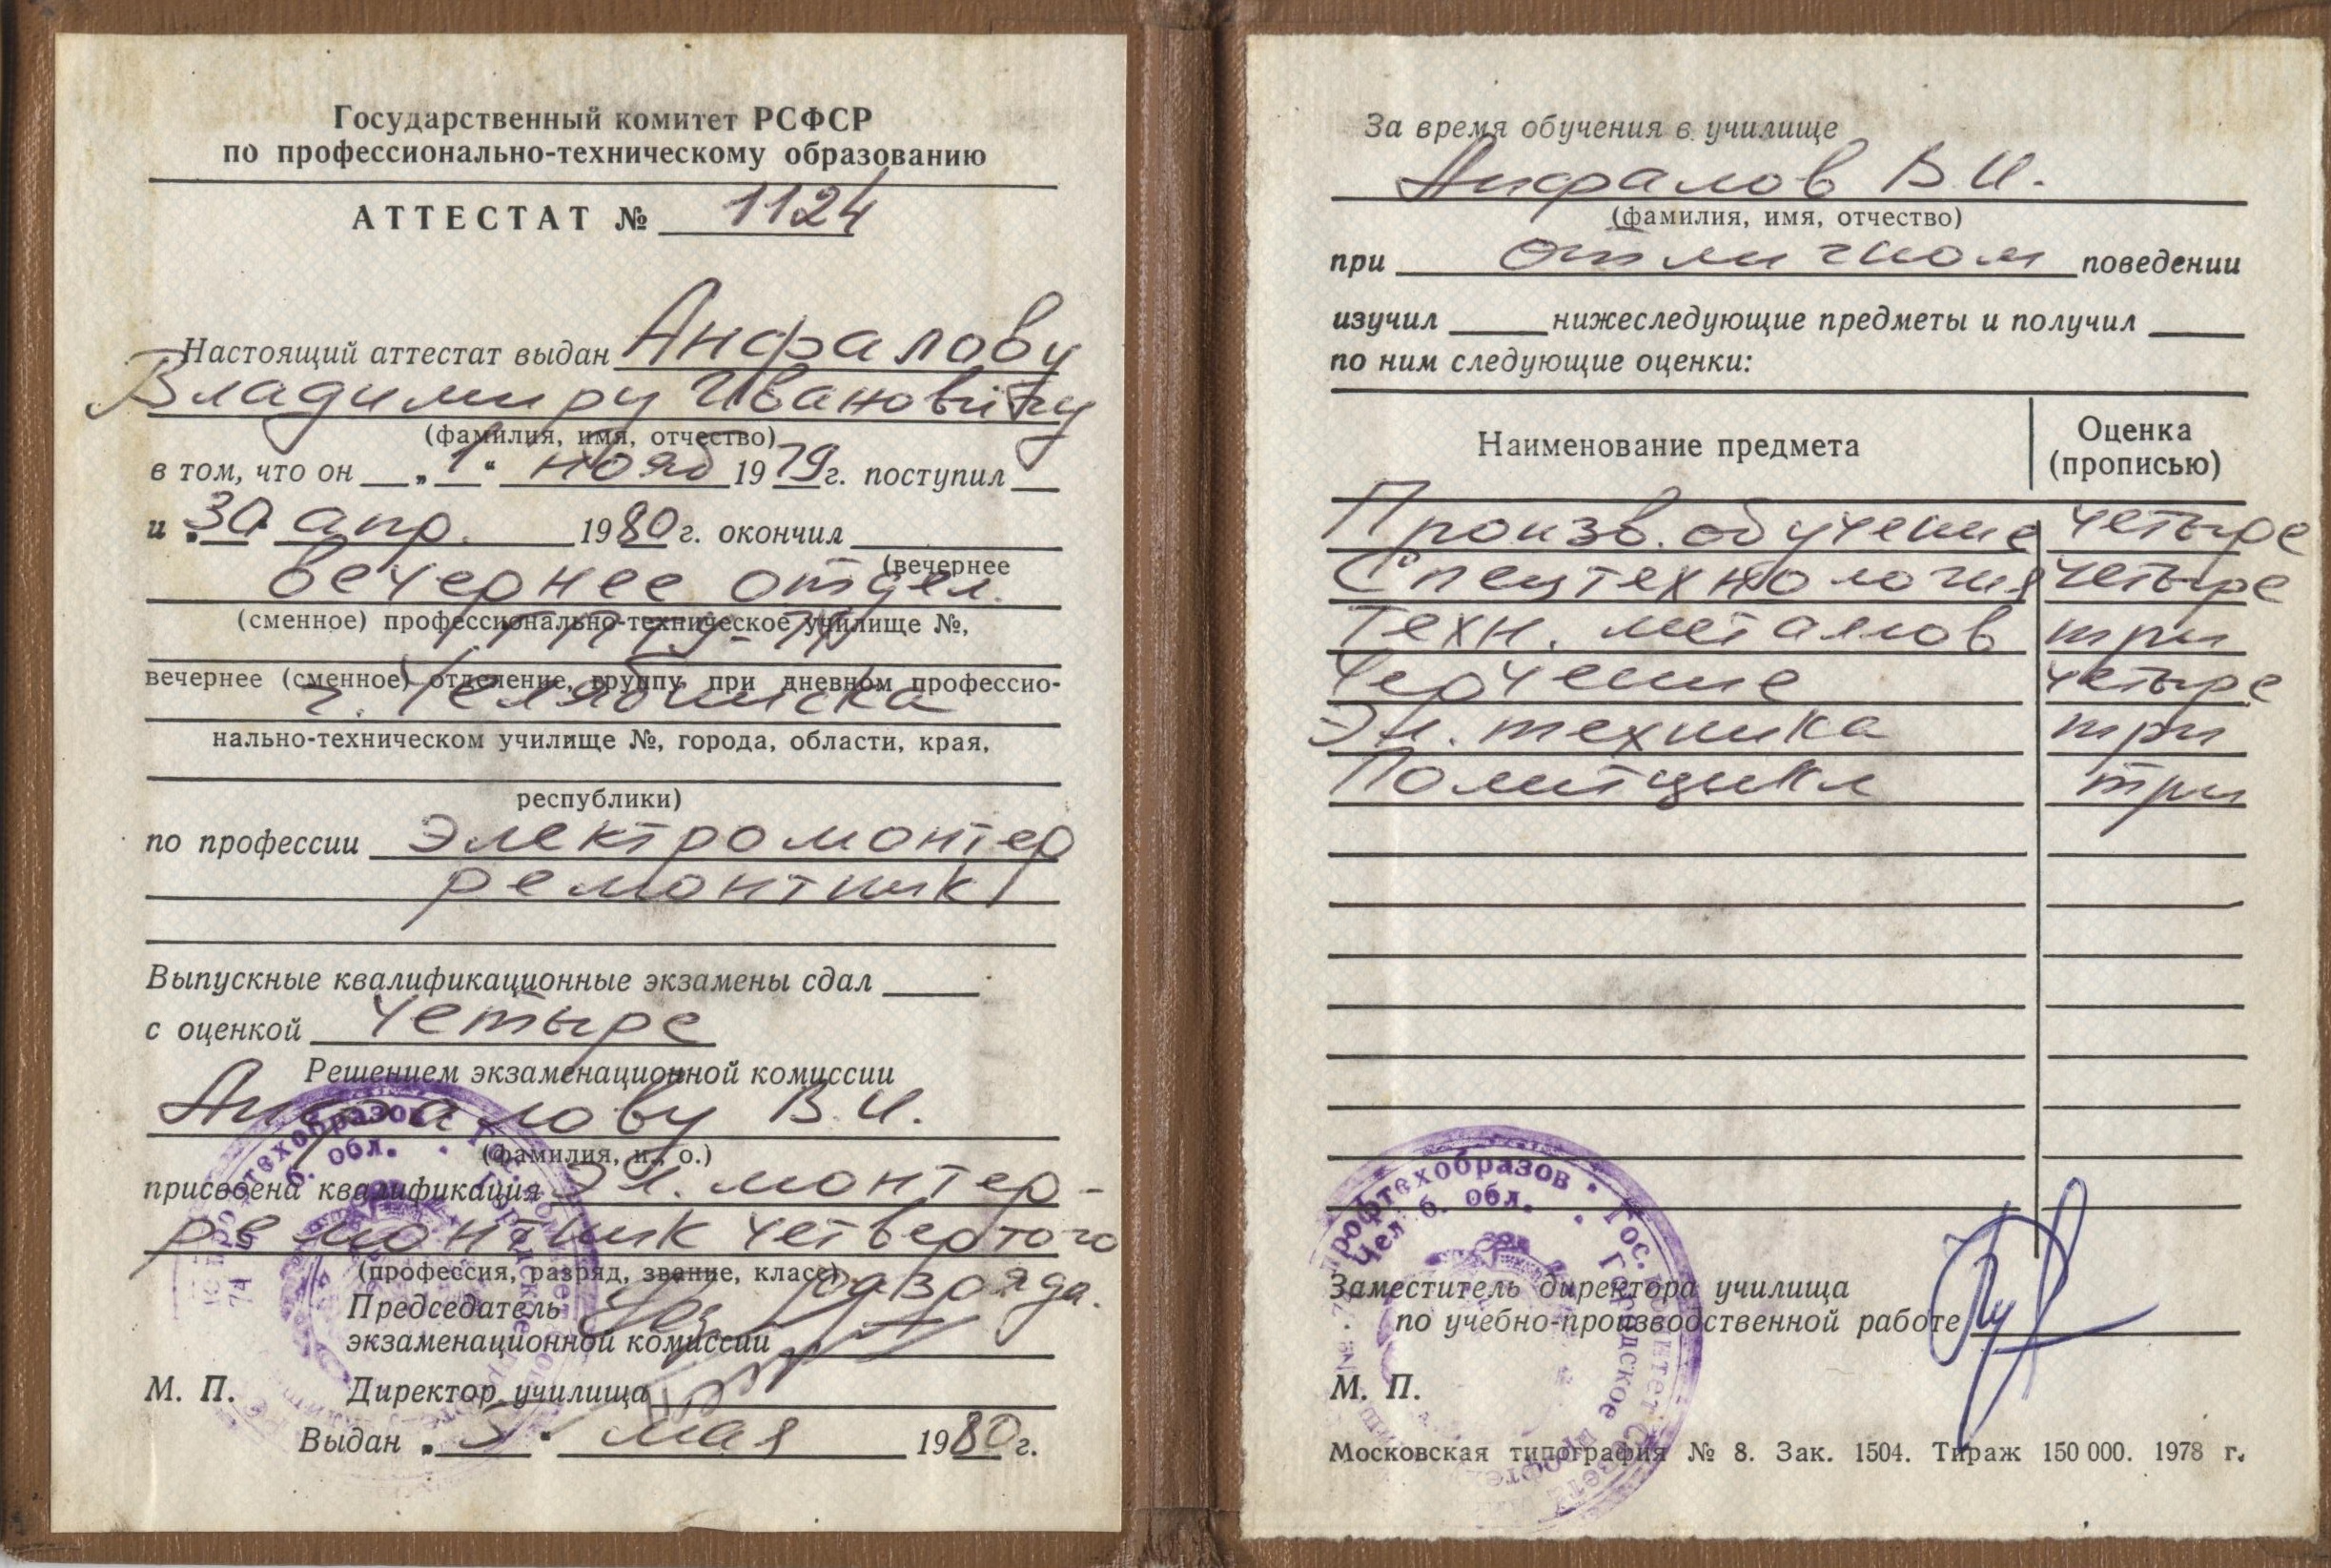 Государственный комитет РСФСР
по профессионально-техническому образованию
АТТЕСТАТ № 1124
Настоящий аттестат выдан Анфалову
Владимиру Ивановичу
(фамилия, имя, отчество)
в том, что он „1“ нояб 1979 г. поступил
и 30 апр. 1980 г. окончил
(вечернее
вечернее отдел.
(сменное) профессионально-техническое училище №,
вечернее (сменное) отделение, группу при дневном профессио-
г. Челябинска
нально-техническом училище №, города, области, края,
республики)
по профессии электромонтер
ремонтник
Выпускные квалификационные экзамены сдал
с оценкой четыре
Решением экзаменационной комиссии
Анфалову В.И.
(фамилия, и., о.)
присвоена квалификация эл. монтер-
ремонтник четвертого
(профессия, разряд, звание, класс) разряда.
Председатель
экзаменационной комиссии
М. П. Директор училища
Выдан „5“ мая 1980 г.
За время обучения в училище
Анфалов В.И.
(фамилия, имя, отчество)
при отличном поведении
изучил нижеследующие предметы и получил
по ним следующие оценки:
Наименование предмета Оценка (прописью)
Произв. обучение четыре
Спецтехнология четыре
Техн. металлов три
Черчение четыре
Эл. техника три
Политцикл три
Профтехобразов • Гос. комитет
Чел б. обл. • Городское
Заместитель директора училища
по учебно-производственной работе
М. П.
Московская типография № 8. Зак. 1504. Тираж 150 000. 1978 г.